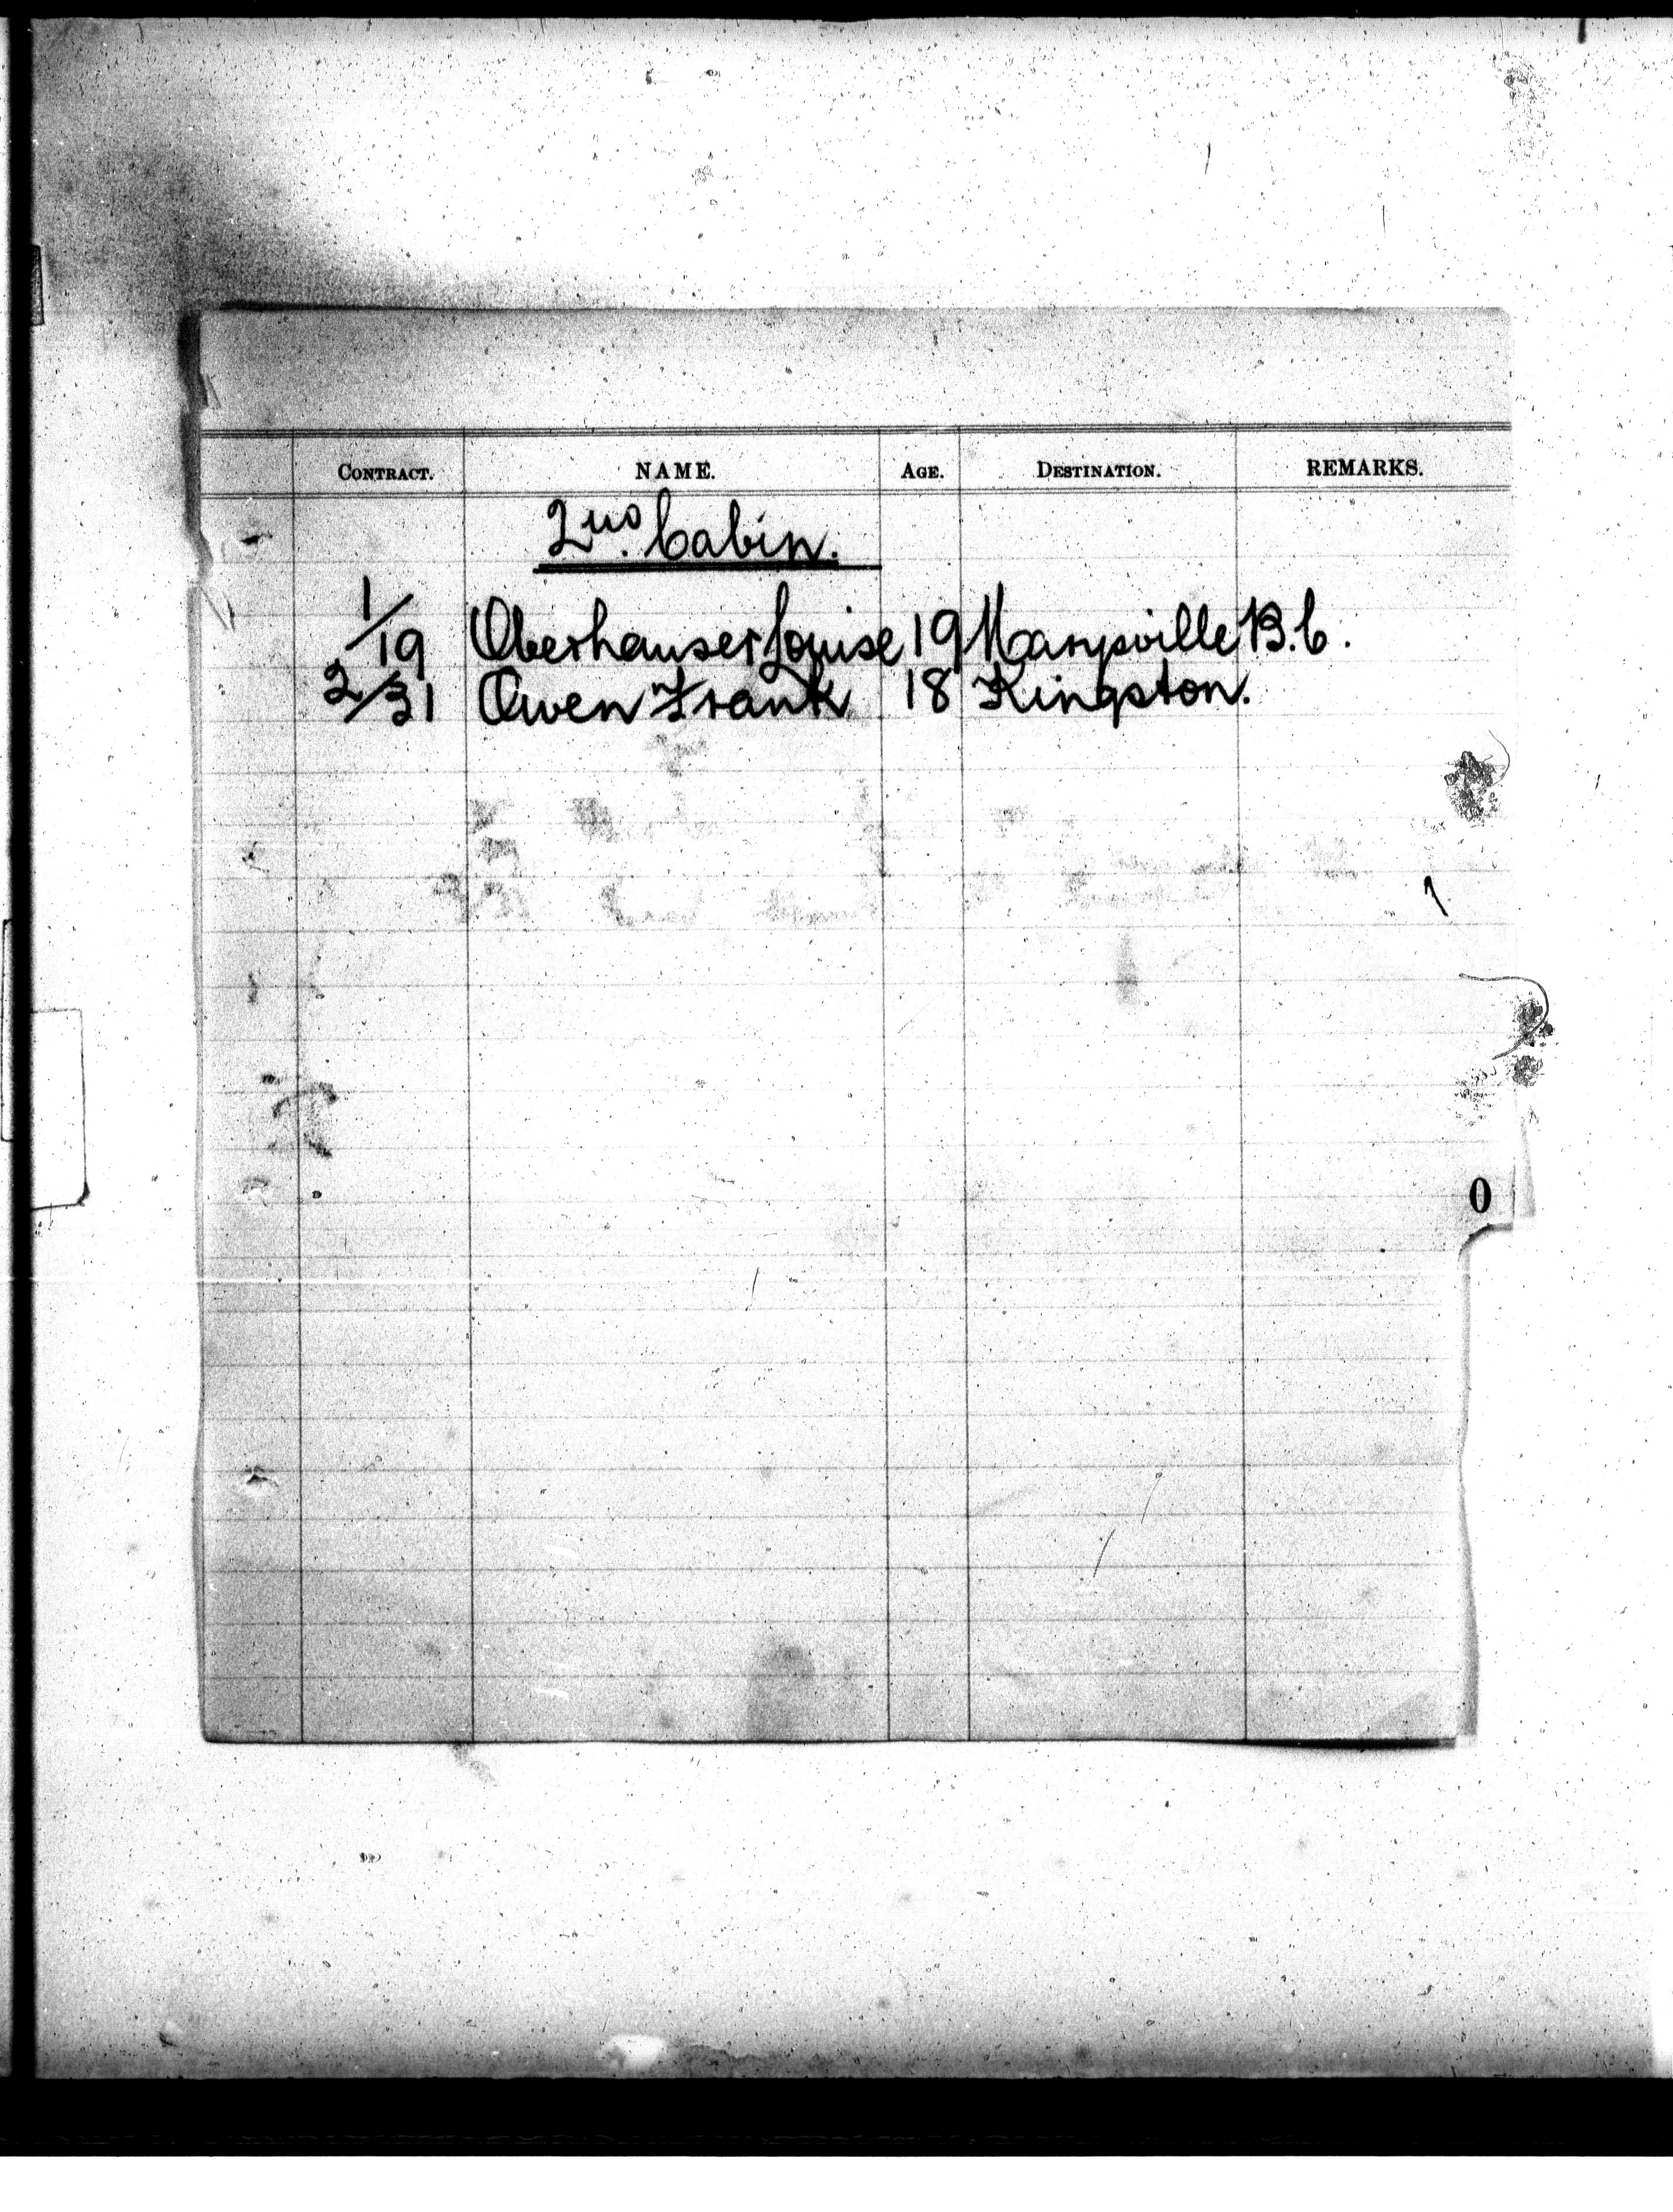 CONTRACT. NAME. AGE. DESTINATION. REMARKS.
2nd. Cabin.
1/19 Oberhauser Louise 19 Marysville B.C.
2/31 Owen Frank 18 Kingston.
O